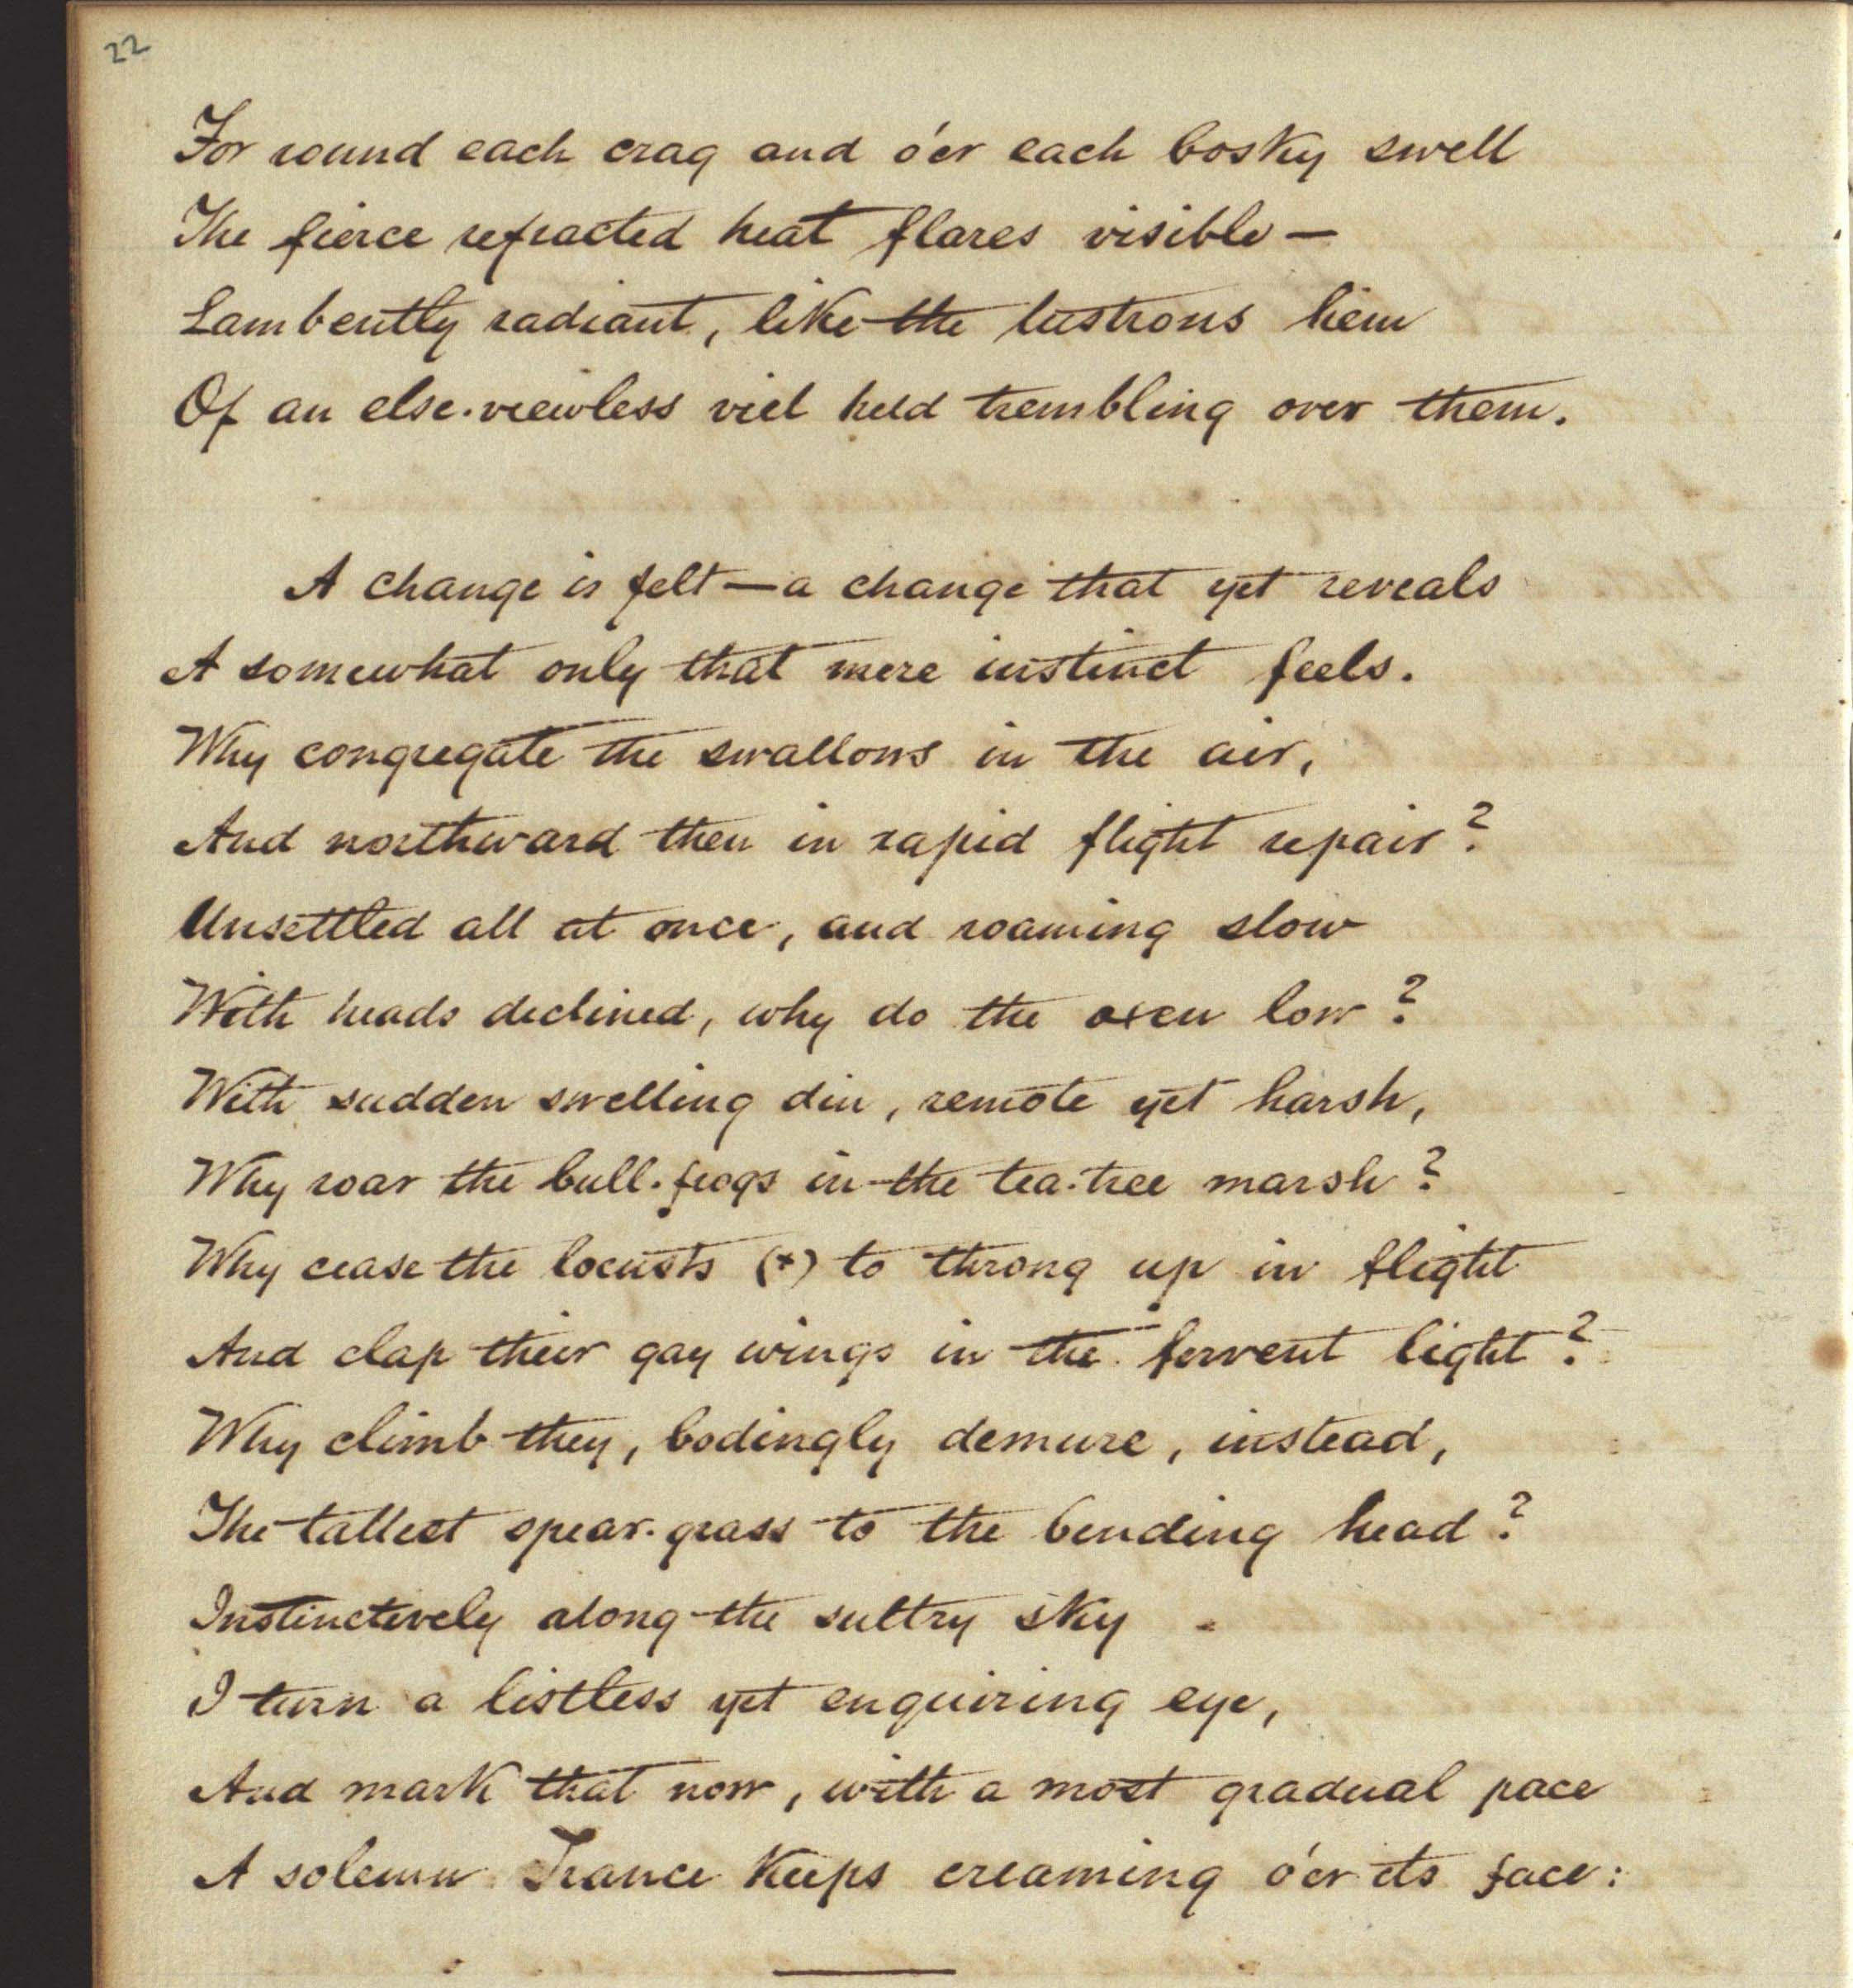 22
For round each crag and o'er each bosky swell
The fierce refracted heat flares visible —
Lambently radiant, like the lustrous hem
Of an else-viewless viel held trembling over them.
A change is felt — a change that yet reveals
A somewhat only that mere instinct feels.
Why congregate the swallows in the air,
And northward then in rapid flight repair?
Unsettled all at once, and roaming slow
With heads declined, why do the oxen low?
With sudden swelling din, remote yet harsh,
Why roar the bull-frogs in the tea-tree marsh?
Why cease the locusts (+) to throng up in flight
And clap their gay wings in the fervent light?
Why climb they, bodingly demure, instead,
The tallest spear-grass to the bending head?
Instinctively along the sultry sky
I turn a listless yet enquiring eye,
And mark that now, with a most gradual pace
A solemn Trance keeps creaming o'er its face: